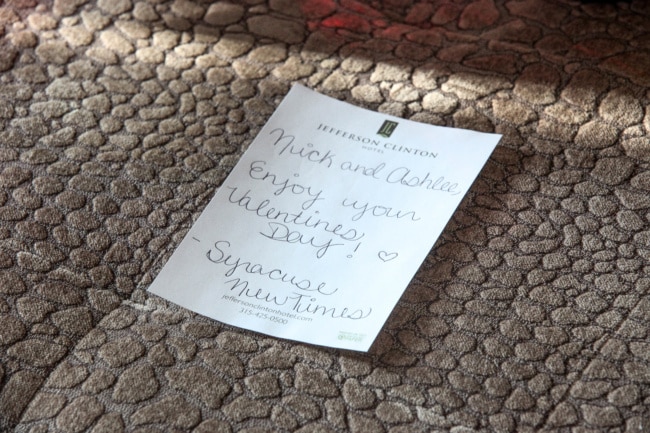 JEFFERSON CLINTON
HOTEL
Nick and Ashlee,
Enjoy your
Valentines
Day! ♡
- Syracuse
New Times
jeffersonclintonhotel.com
315-425-0500